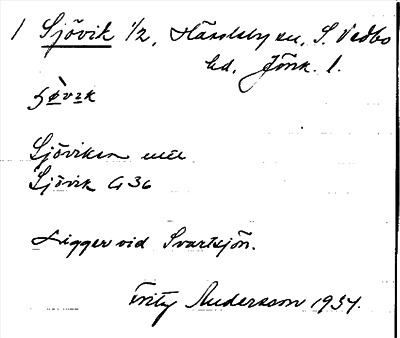 1 Sjövik 1/2, Härdsby sn, S. Vedbo
hd, Jönk. l.
Sjöviken
Sjövik G 36
Ligger vid Svartsjön.
Fritz Andersson 1934.